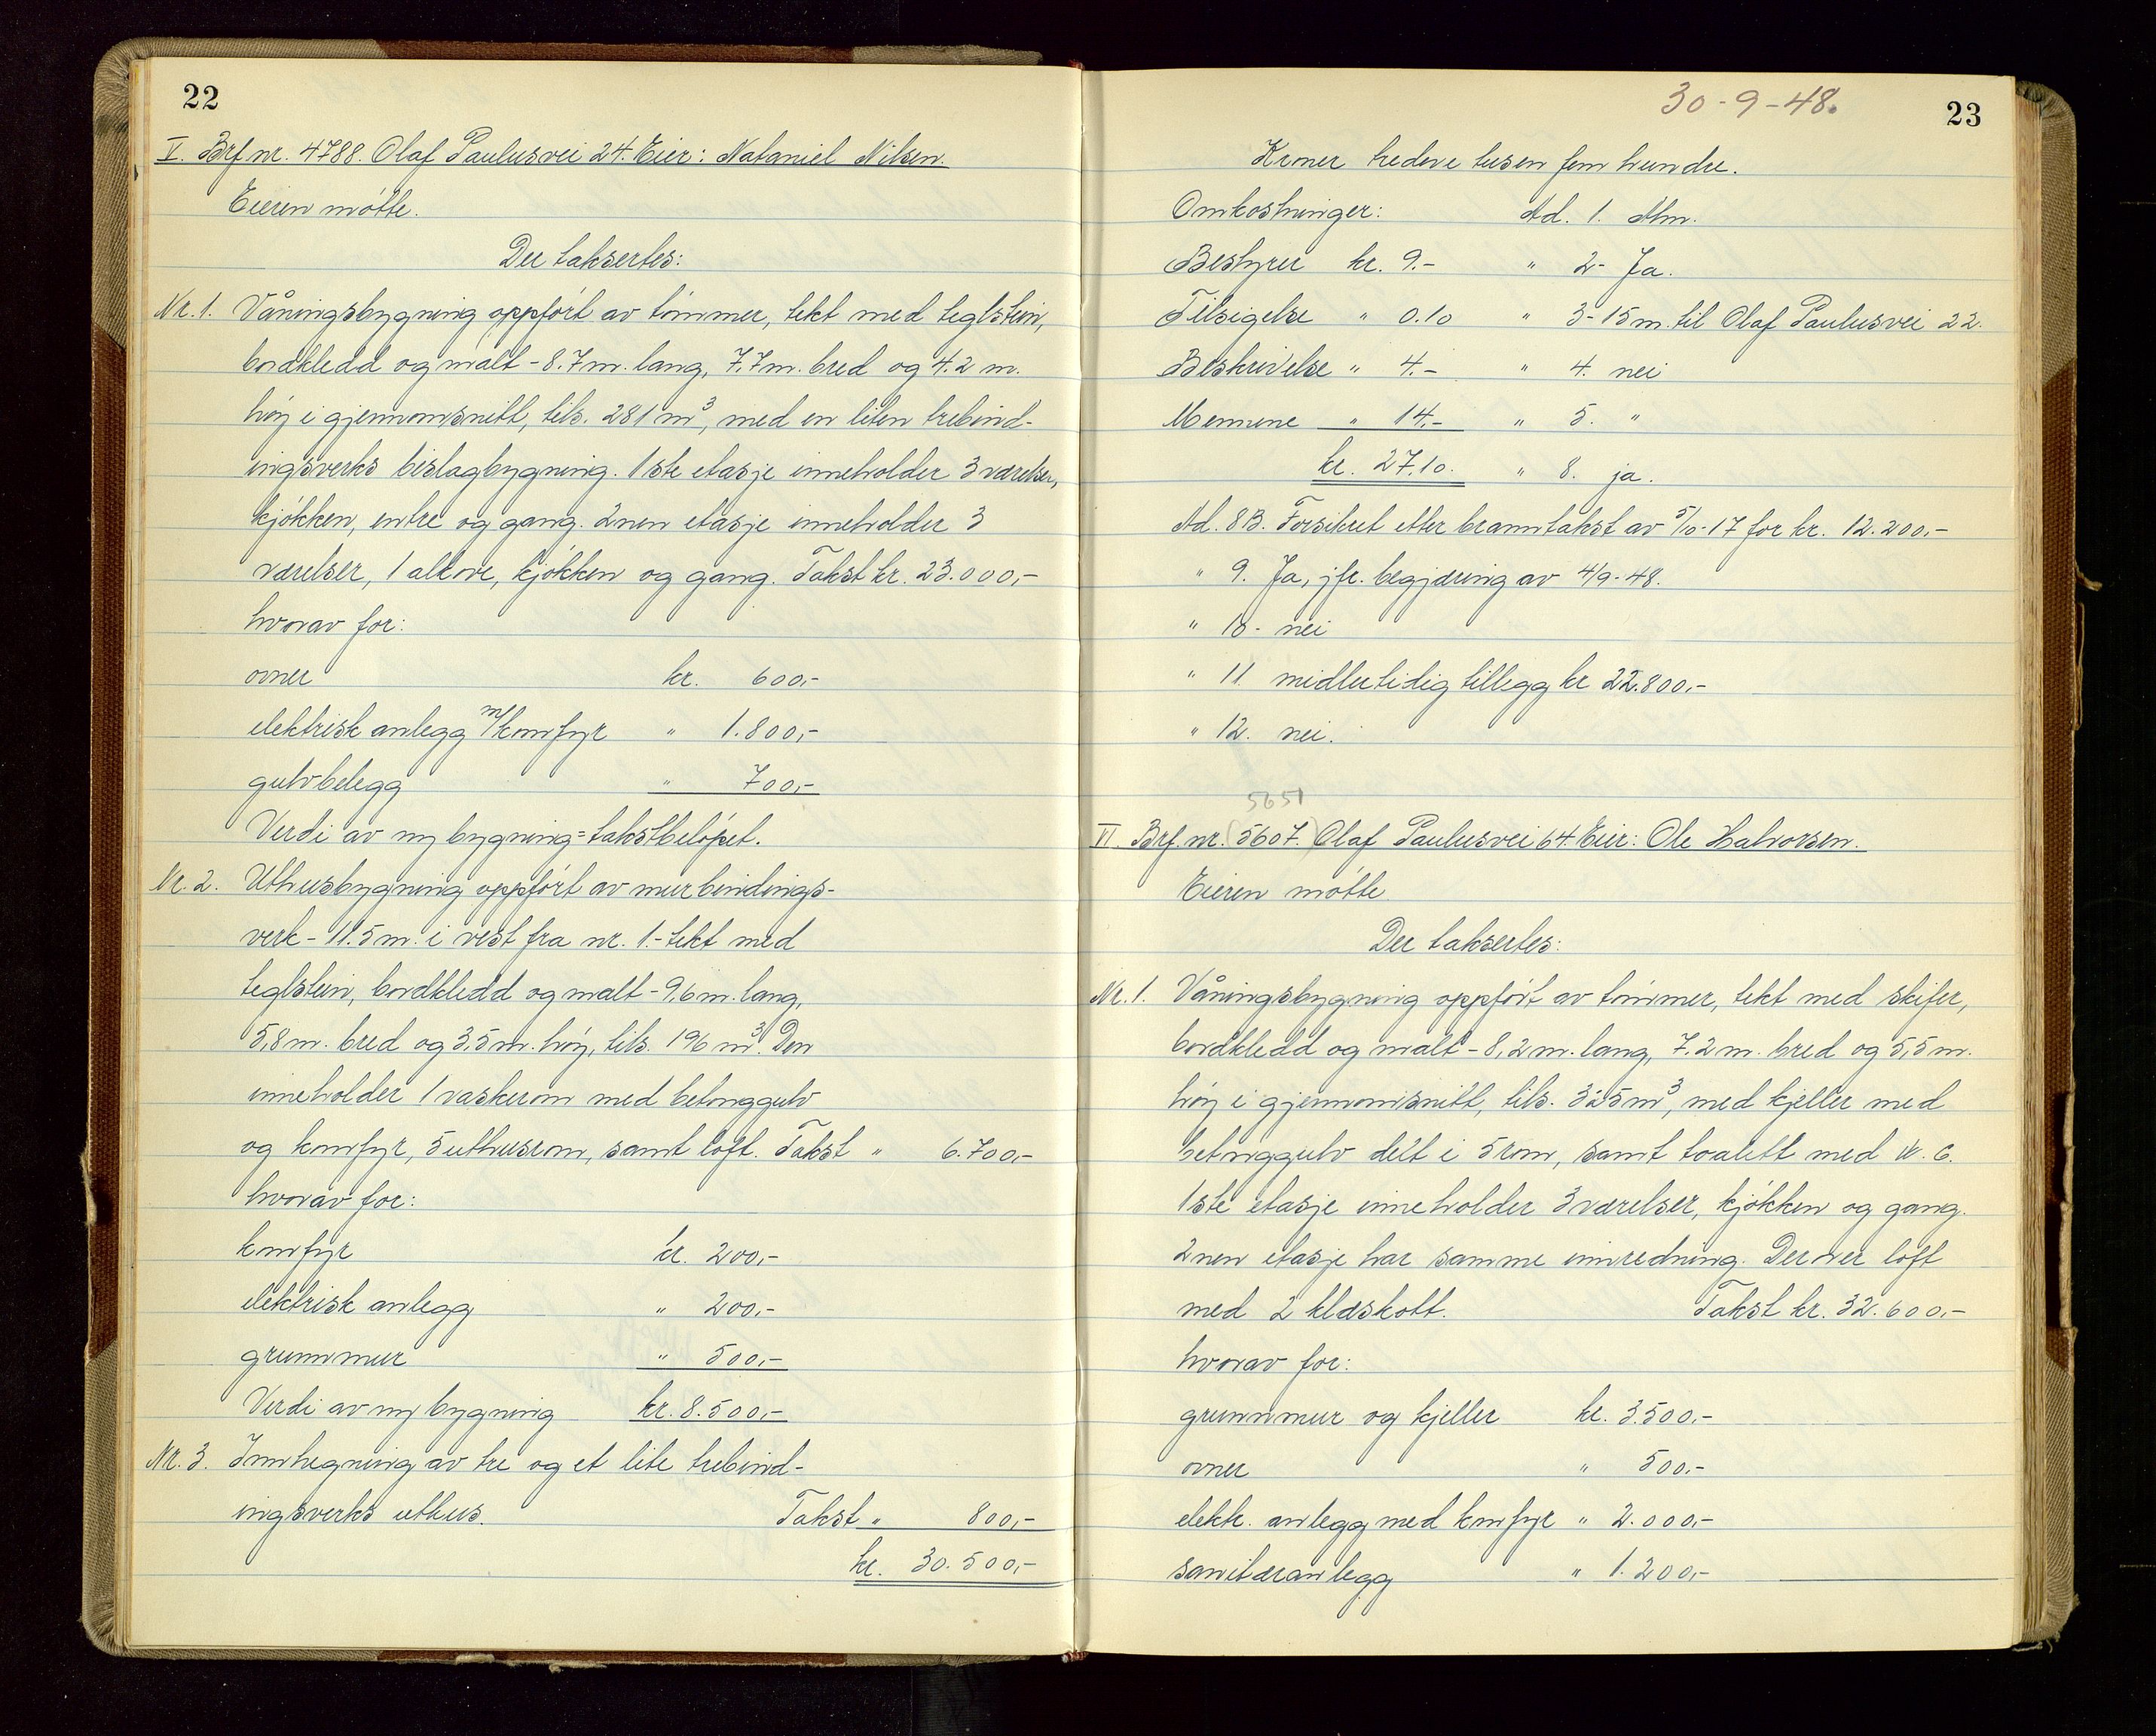 22
V. Brf nr. 4788. Olaf Paulusvei 24. Eier: Nataniel Nilsen.
Eieren møtte.
Der taksertes:
Nr. 1. Våningsbygning oppført av tømmer, tekt med teglstein,
bordkledd og malt - 8.7 m. lang, 7.7 m. bred og 4.2 m.
høy i gjennomsnitt, tils. 281 m³, med en liten trebind-
ingsverks bislagbygning. 1ste etasje inneholder 3 værelser,
kjøkken, entre og gang. 2nen etasje inneholder 3
værelser, 1 alkove, kjøkken og gang. Takst kr. 23.000,-
hvorav for:
ovner kr. 600,-
elektrisk anlegg m/komfyr " 1.800,-
gulvbelegg " 700,-
Verdi av ny bygning = takstbeløpet.
Nr. 2. Uthusbygning oppført av murbindings-
verk - 11.5 m. i vest fra nr. 1. - tekt med
teglstein, bordkledd og malt - 9,6 m. lang,
5,8 m. bred og 3,5 m. høy, tils. 196 m³. Den
inneholder 1 vaskerom med betonggulv
og komfyr, 5 uthusrom, samt loft. Takst " 6.700,-
hvorav for:
komfyr kr. 200,-
elektrisk anlegg " 200,-
grunnmur " 500,-
Verdi av ny bygning kr. 8.500,-
Nr. 3. Innhegning av tre og et lite trebind-
ingsverks uthus. Takst " 800,-
kr. 30.500,-
30-9-48.
23
Kroner tredeve tusen fem hundre.
Omkostninger: Ad. 1. Alm.
Bestyrer kr. 9.- " 2- Ja.
Tilsigelse " 0.10 " 3- 15 m. til Olaf Paulusvei 22.
Beskrivelse " 4.- " 4. nei
Mennene " 14,- " 5. "
kr. 27.10. " 8. ja.
Ad. 8B. Forsikret etter branntakst av 5/10-17 for kr. 12.200,-
" 9. Ja, jfr. begjæring av 4/9-48.
" 10- nei
" 11. midlertidig tillegg kr 22.800,-
" 12. nei.
5651
VI. Brf. nr. (5607.) Olaf Paulusvei 64. Eier: Ole Halvorsen.
Eieren møtte.
Der taksertes:
Nr. 1. Våningsbygning oppført av tømmer, tekt med skifer,
bordkledd og malt - 8,2 m. lang, 7.2 m. bred og 5,5 m.
høy i gjennomsnitt, tils. 325 m³, med kjeller med
betonggulv delt i 5 rom, samt toalett med W.C.
1ste etasje inneholder 3 værelser, kjøkken og gang.
2nen etasje har samme innredning. Derover loft
med 2 klæskott. Takst kr. 32.600,-
hvorav for:
grunnmur og kjeller kr. 3.500,-
ovner " 500,-
elektr. anlegg med komfyr " 2.000,-
sanitæranlegg " 1.200,-